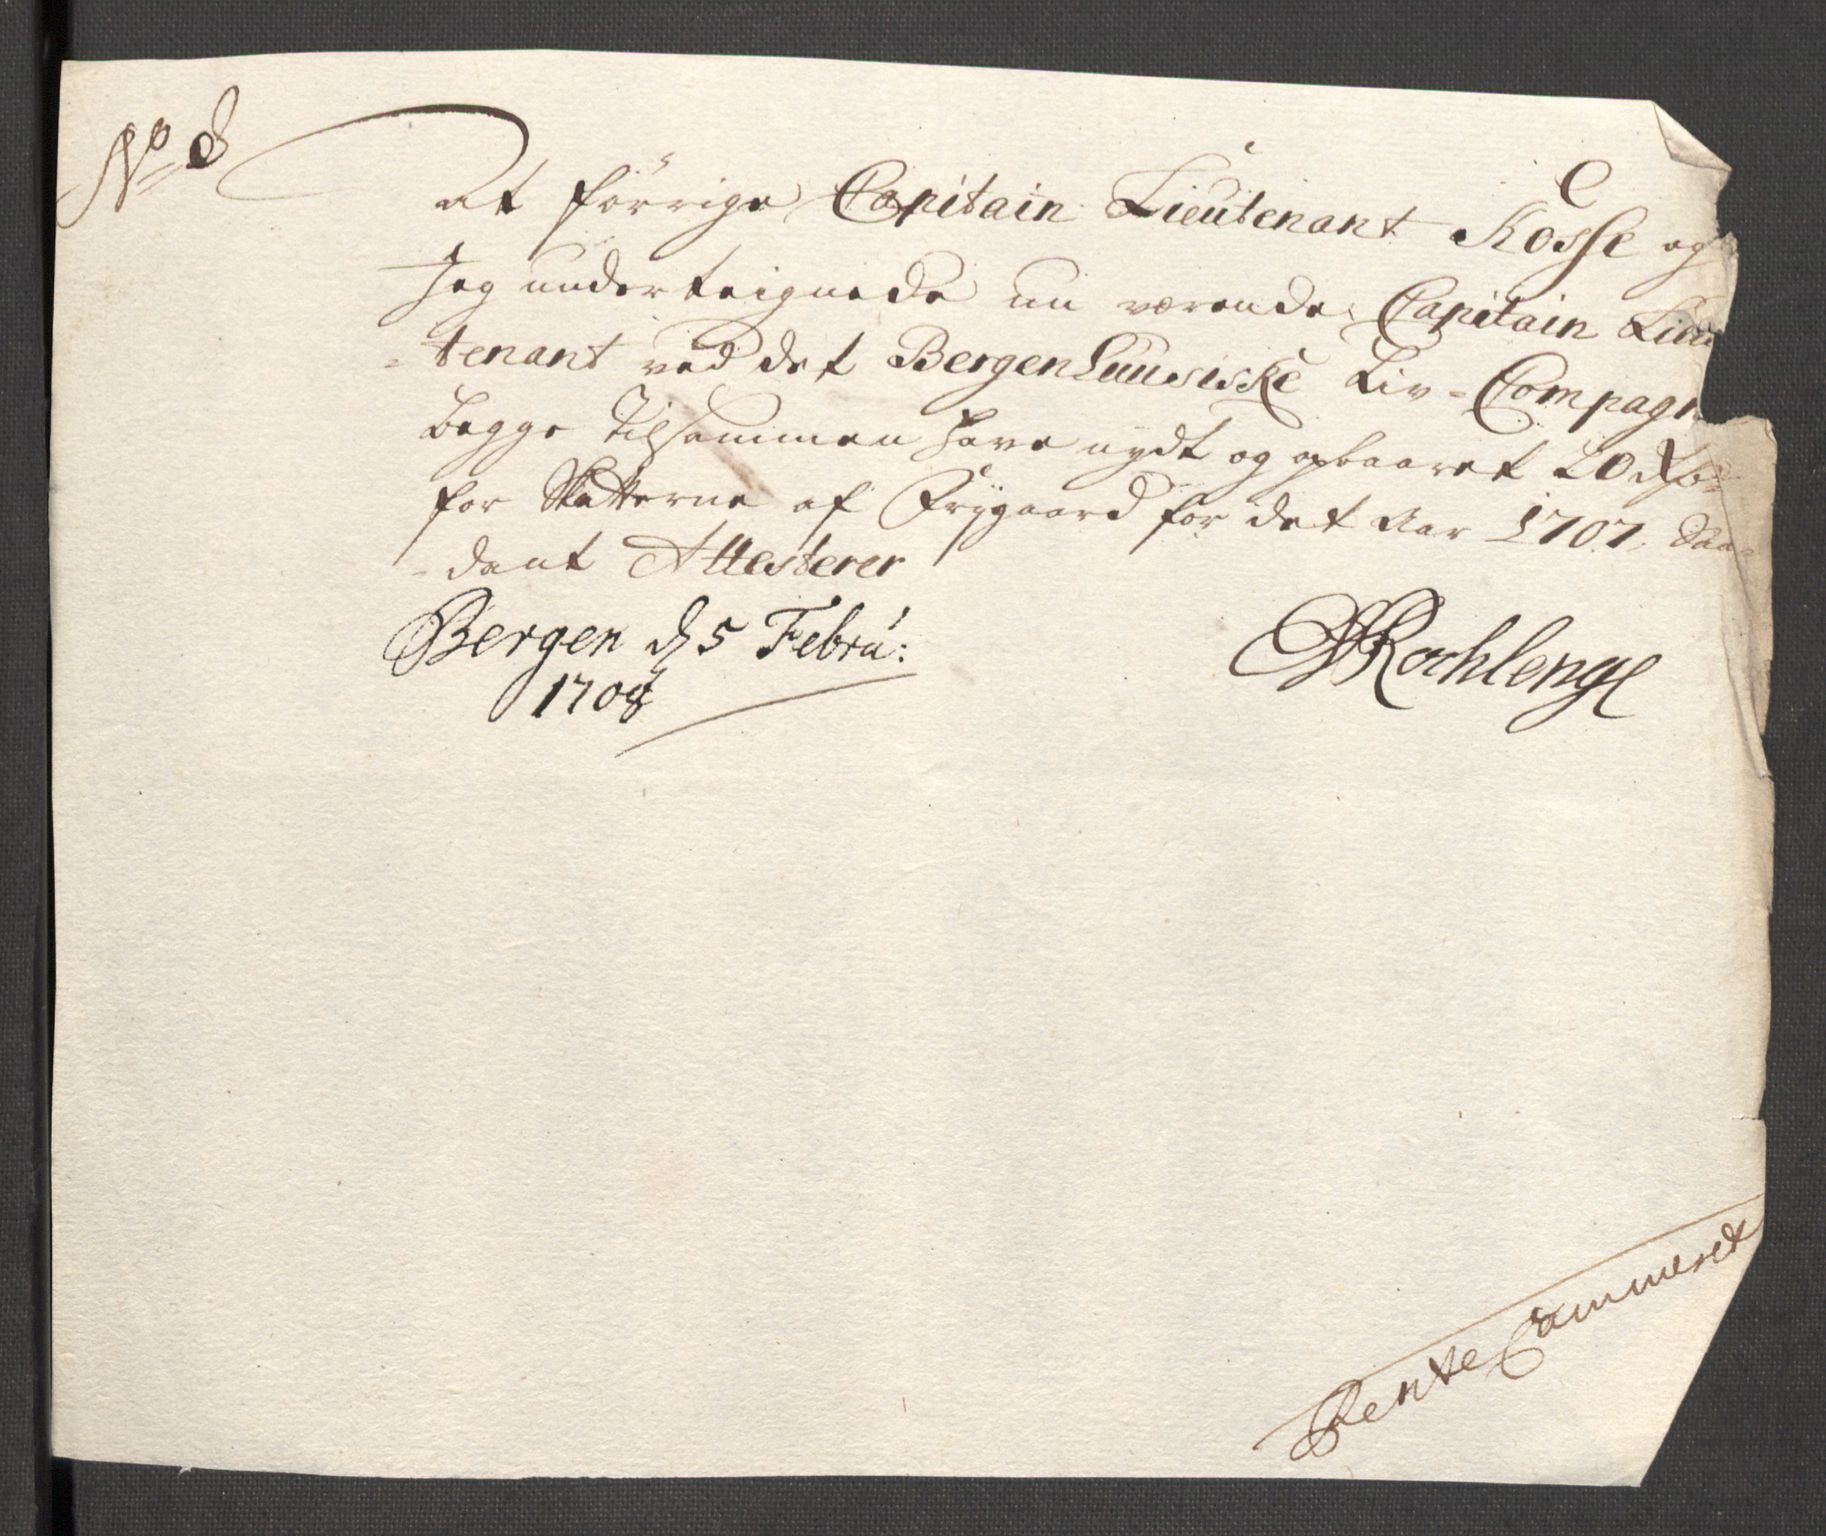 No 8
At forrige Capitain Lieutenant Kosse og
Jeg underteignede nu værende Capitain Lieu
-tenant ved det BergenHuusiske Liv-Compagn
begge Tilsammen have nydt og opbaaret 20 Rdr
for Skatterne af Frygaard for det Aar 1707, Saa-
-dant Attesterer
Bergen d 5 Febru:
1708
Rente Cammeret